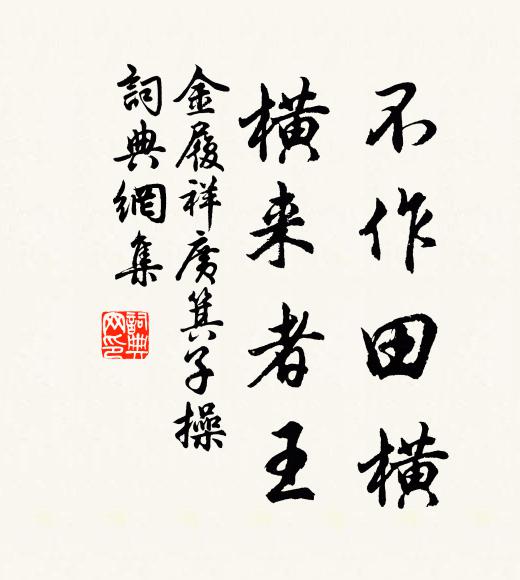 不作田橫
橫来者王
金履祥廣箕子操
詞典網集
詞典網印